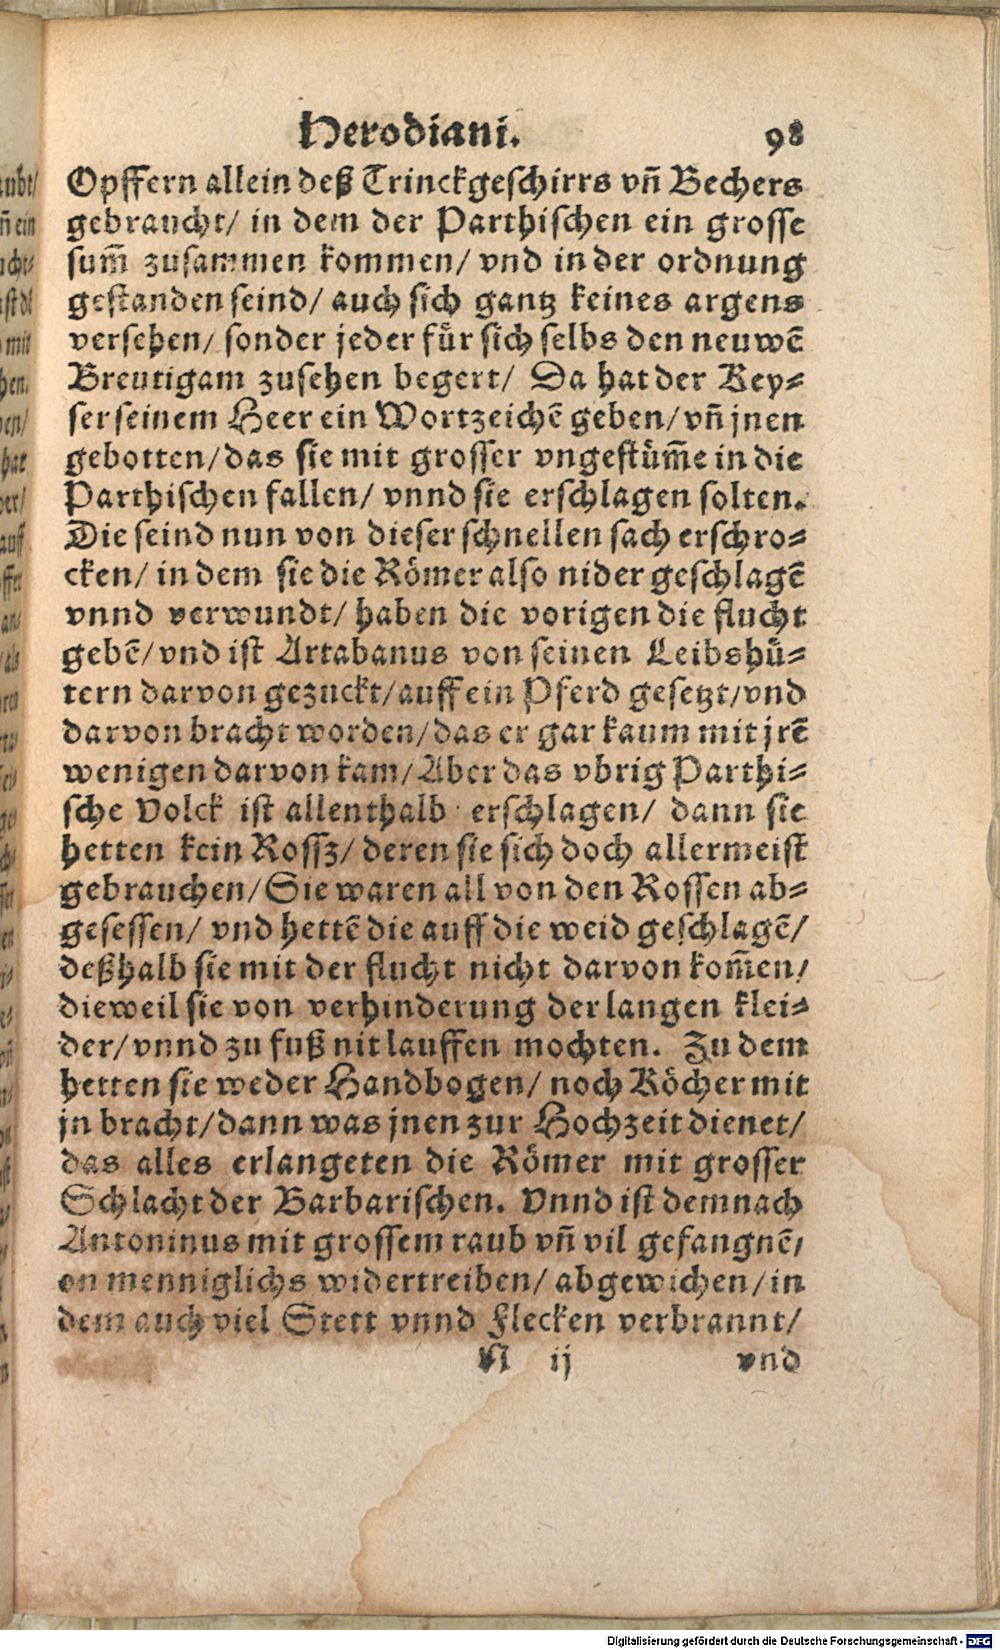 Herodiani. 98
Opffern allein deß Trinckgeschirrs vñ Bechers
gebraucht/ in dem der Parthischen ein grosse
sum̃ zusammen kommen/ vnd in der ordnung
gestanden seind/ auch sich gantz keines argens
versehen/ sonder jeder für sich selbs den neuwẽ
Breutigam zusehen begert/ Da hat der Key-
ser seinem Heer ein Wortzeichẽ geben/ vñ jnen
gebotten/ das sie mit grosser vngestüm̃e in die
Parthischen fallen/ vnnd sie erschlagen solten.
Die seind nun von dieser schnellen sach erschro-
cken/ in dem sie die Römer also nider geschlagẽ
vnnd verwundt/ haben die vorigen die flucht
gebẽ/ vnd ist Artabanus von seinen Leibshü-
tern darvon gezuckt/ auff ein Pferd gesetzt/ vnd
darvon bracht worden/ das er gar kaum mit jrẽ
wenigen darvon kam/ Aber das vbrig Parthi-
sche Volck ist allenthalb erschlagen/ dann sie
hetten kein Rossz/ deren sie sich doch allermeist
gebrauchen/ Sie waren all von den Rossen ab-
gesessen/ vnd hettẽ die auff die weid geschlagẽ/
deßhalb sie mit der flucht nicht darvon kom̃en/
dieweil sie von verhinderung der langen klei-
der/ vnnd zu fuß nit lauffen mochten. Zu dem
hetten sie weder Handbogen/ noch Köcher mit
jn bracht/ dann was jnen zur Hochzeit dienet/
das alles erlangeten die Römer mit grosser
Schlacht der Barbarischen. Vnnd ist demnach
Antoninus mit grossem raub vñ vil gefangnẽ/
on menniglichs widertreiben/ abgewichen/ in
dem auch viel Stett vnnd Flecken verbrannt/
N ij vnd
Digitalisierung gefördert durch die Deutsche Forschungsgemeinschaft - DFG